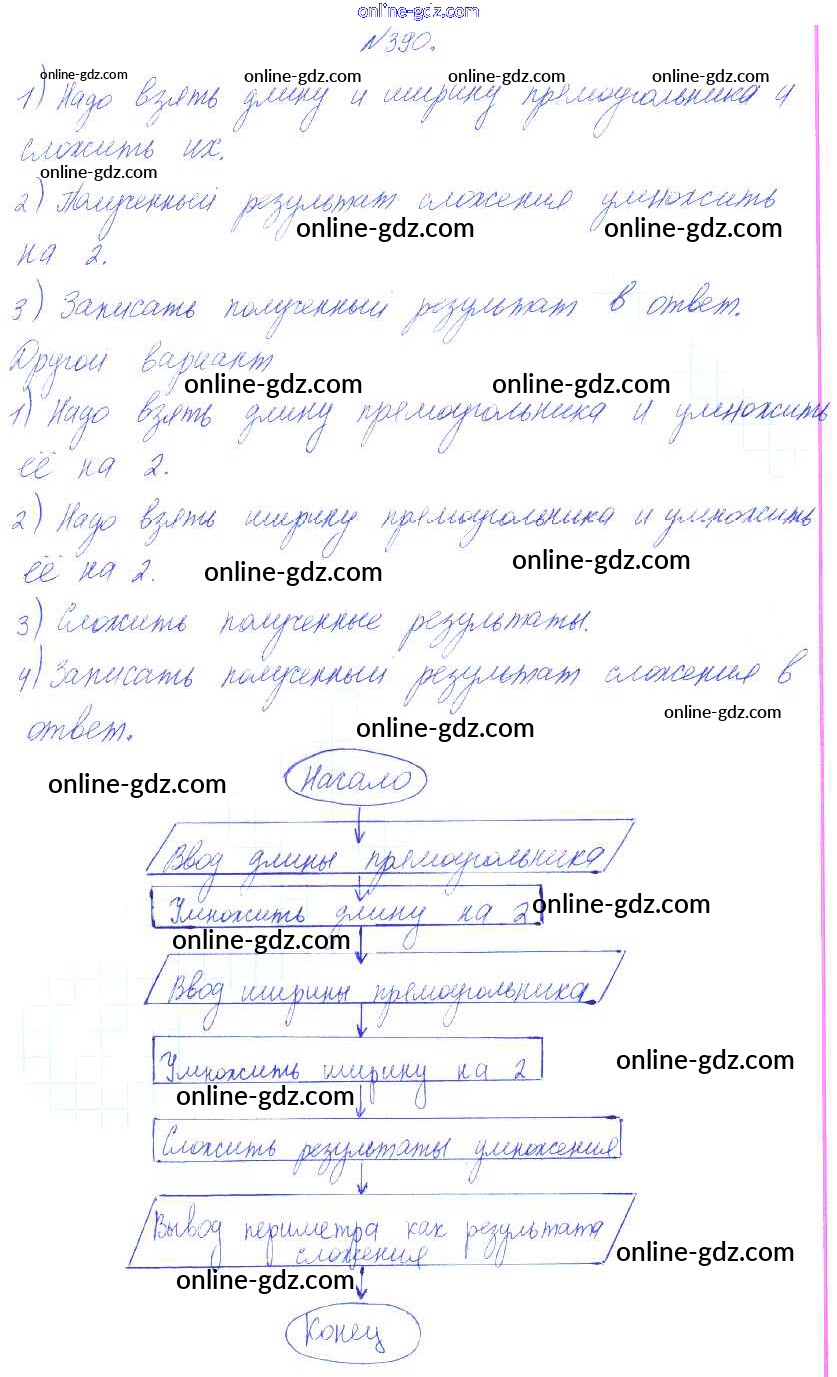 online-gdz.com
№390.
online-gdz.com online-gdz.com online-gdz.com online-gdz.com
1) Надо взять длину и ширину прямоугольника и
сложить их.
online-gdz.com
2) Полученный результат сложения умножить
online-gdz.com online-gdz.com
на 2.
3) Записать полученный результат в ответ.
Другой вариант
online-gdz.com online-gdz.com
1) Надо взять длину прямоугольника и умножить
её на 2.
2) Надо взять ширину прямоугольника и умножить
её на 2.
online-gdz.com online-gdz.com
3) Сложить полученные результаты.
4) Записать полученный результат сложения в
online-gdz.com
ответ.
online-gdz.com
Начало
online-gdz.com
Ввод длины прямоугольника
Умножить длину на 2
online-gdz.com
online-gdz.com
Ввод ширины прямоугольника
Умножить ширину на 2
online-gdz.com
online-gdz.com
Сложить результаты умножения
Вывод периметра как результата
сложения
online-gdz.com
online-gdz.com
Конец